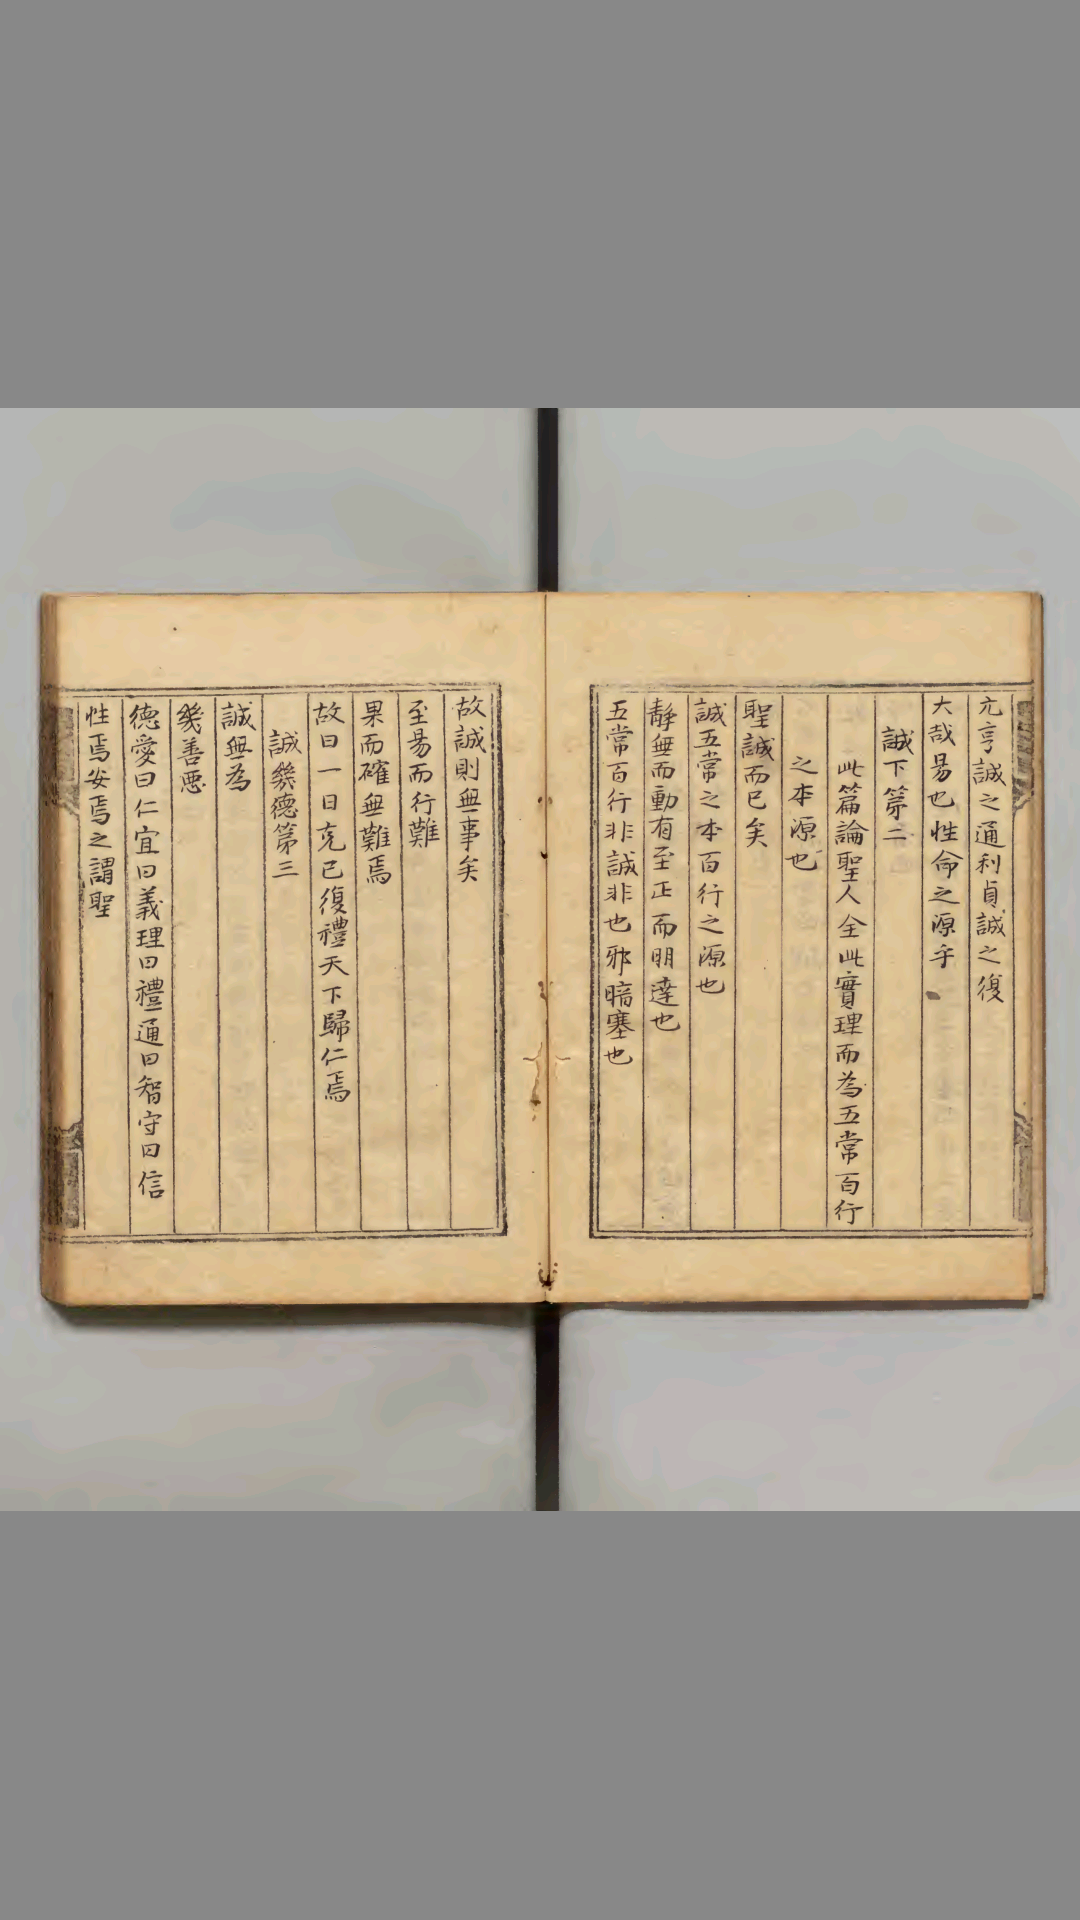 元亨誠之通利貞誠之復
大哉易也性命之源乎
誠下第二
此篇論聖人全此實理而為五常百行
之本源也
聖誠而已矣
誠五常之本百行之源也
靜無而動有至正而明達也
五常百行非誠非也邪暗塞也
故誠則無事矣
至易而行難
果而確無難焉
故曰一日克己復禮天下歸仁焉
誠幾德第三
誠無為
幾善惡
德愛曰仁宜曰義理曰禮通曰智守曰信
性焉安焉之謂聖